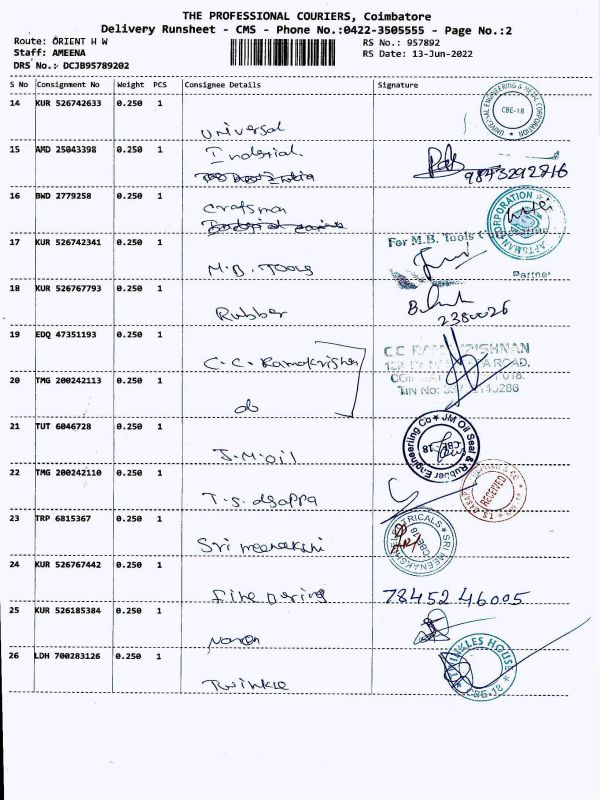 THE PROFESSIONAL COURIERS, Coimbatore
Delivery Runsheet - CMS - Phone No.:0422-3505555 - Page No.:2
Route: ORIENT H W
RS No.: 957892
Staff: AMEENA
RS Date: 13-Jun-2022
DRS No.: DCJB95789202
S No Consignment No Weight PCS Consignee Details Signature
14 KUR 526742633 0.250 1
Universal
UNIVERSAL ENGINEERING & METAL CORPORATION
CBE-18
15 AMD 25043398 0.250 1
Inderial
9843292816
16 BWD 2779258 0.250 1
Craftsman
CRAFTSMAN CORPORATION
17 KUR 526742341 0.250 1
M.B. TOOLS
For M.B. Tools
Partner
18 KUR 526767793 0.250 1
Rubber
2380026
19 EDQ 47351193 0.250 1
C.C. Ramakrishnan
C.C RAMAKRISHNAN
20 TMG 200242113 0.250 1
do
21 TUT 6046728 0.250 1
J.M.oil
JM Oil Seal & Rubber Engineerilng Co
CBE-18
22 TMG 200242110 0.250 1
T.S. dasappa
T.S. DASAPPA
RECEIVED
23 TRP 6815367 0.250 1
Sri meenakshi
SRI MEENAKSHI ELECTRICALS
CBE-18
24 KUR 526767442 0.250 1
78452 46005
25 KUR 526185384 0.250 1
26 LDH 700283126 0.250 1
Twinkle
TWINKLES HOUSE
CBE-18